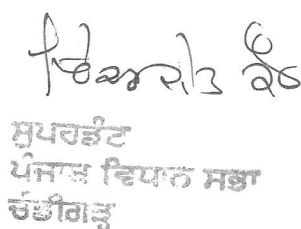 ਕੌਰ
ਸੁਪਰਡੰਟ
ਪੰਜਾਬ ਵਿਧਾਨ ਸਭਾ
ਚੰਡੀਗੜ੍ਹ